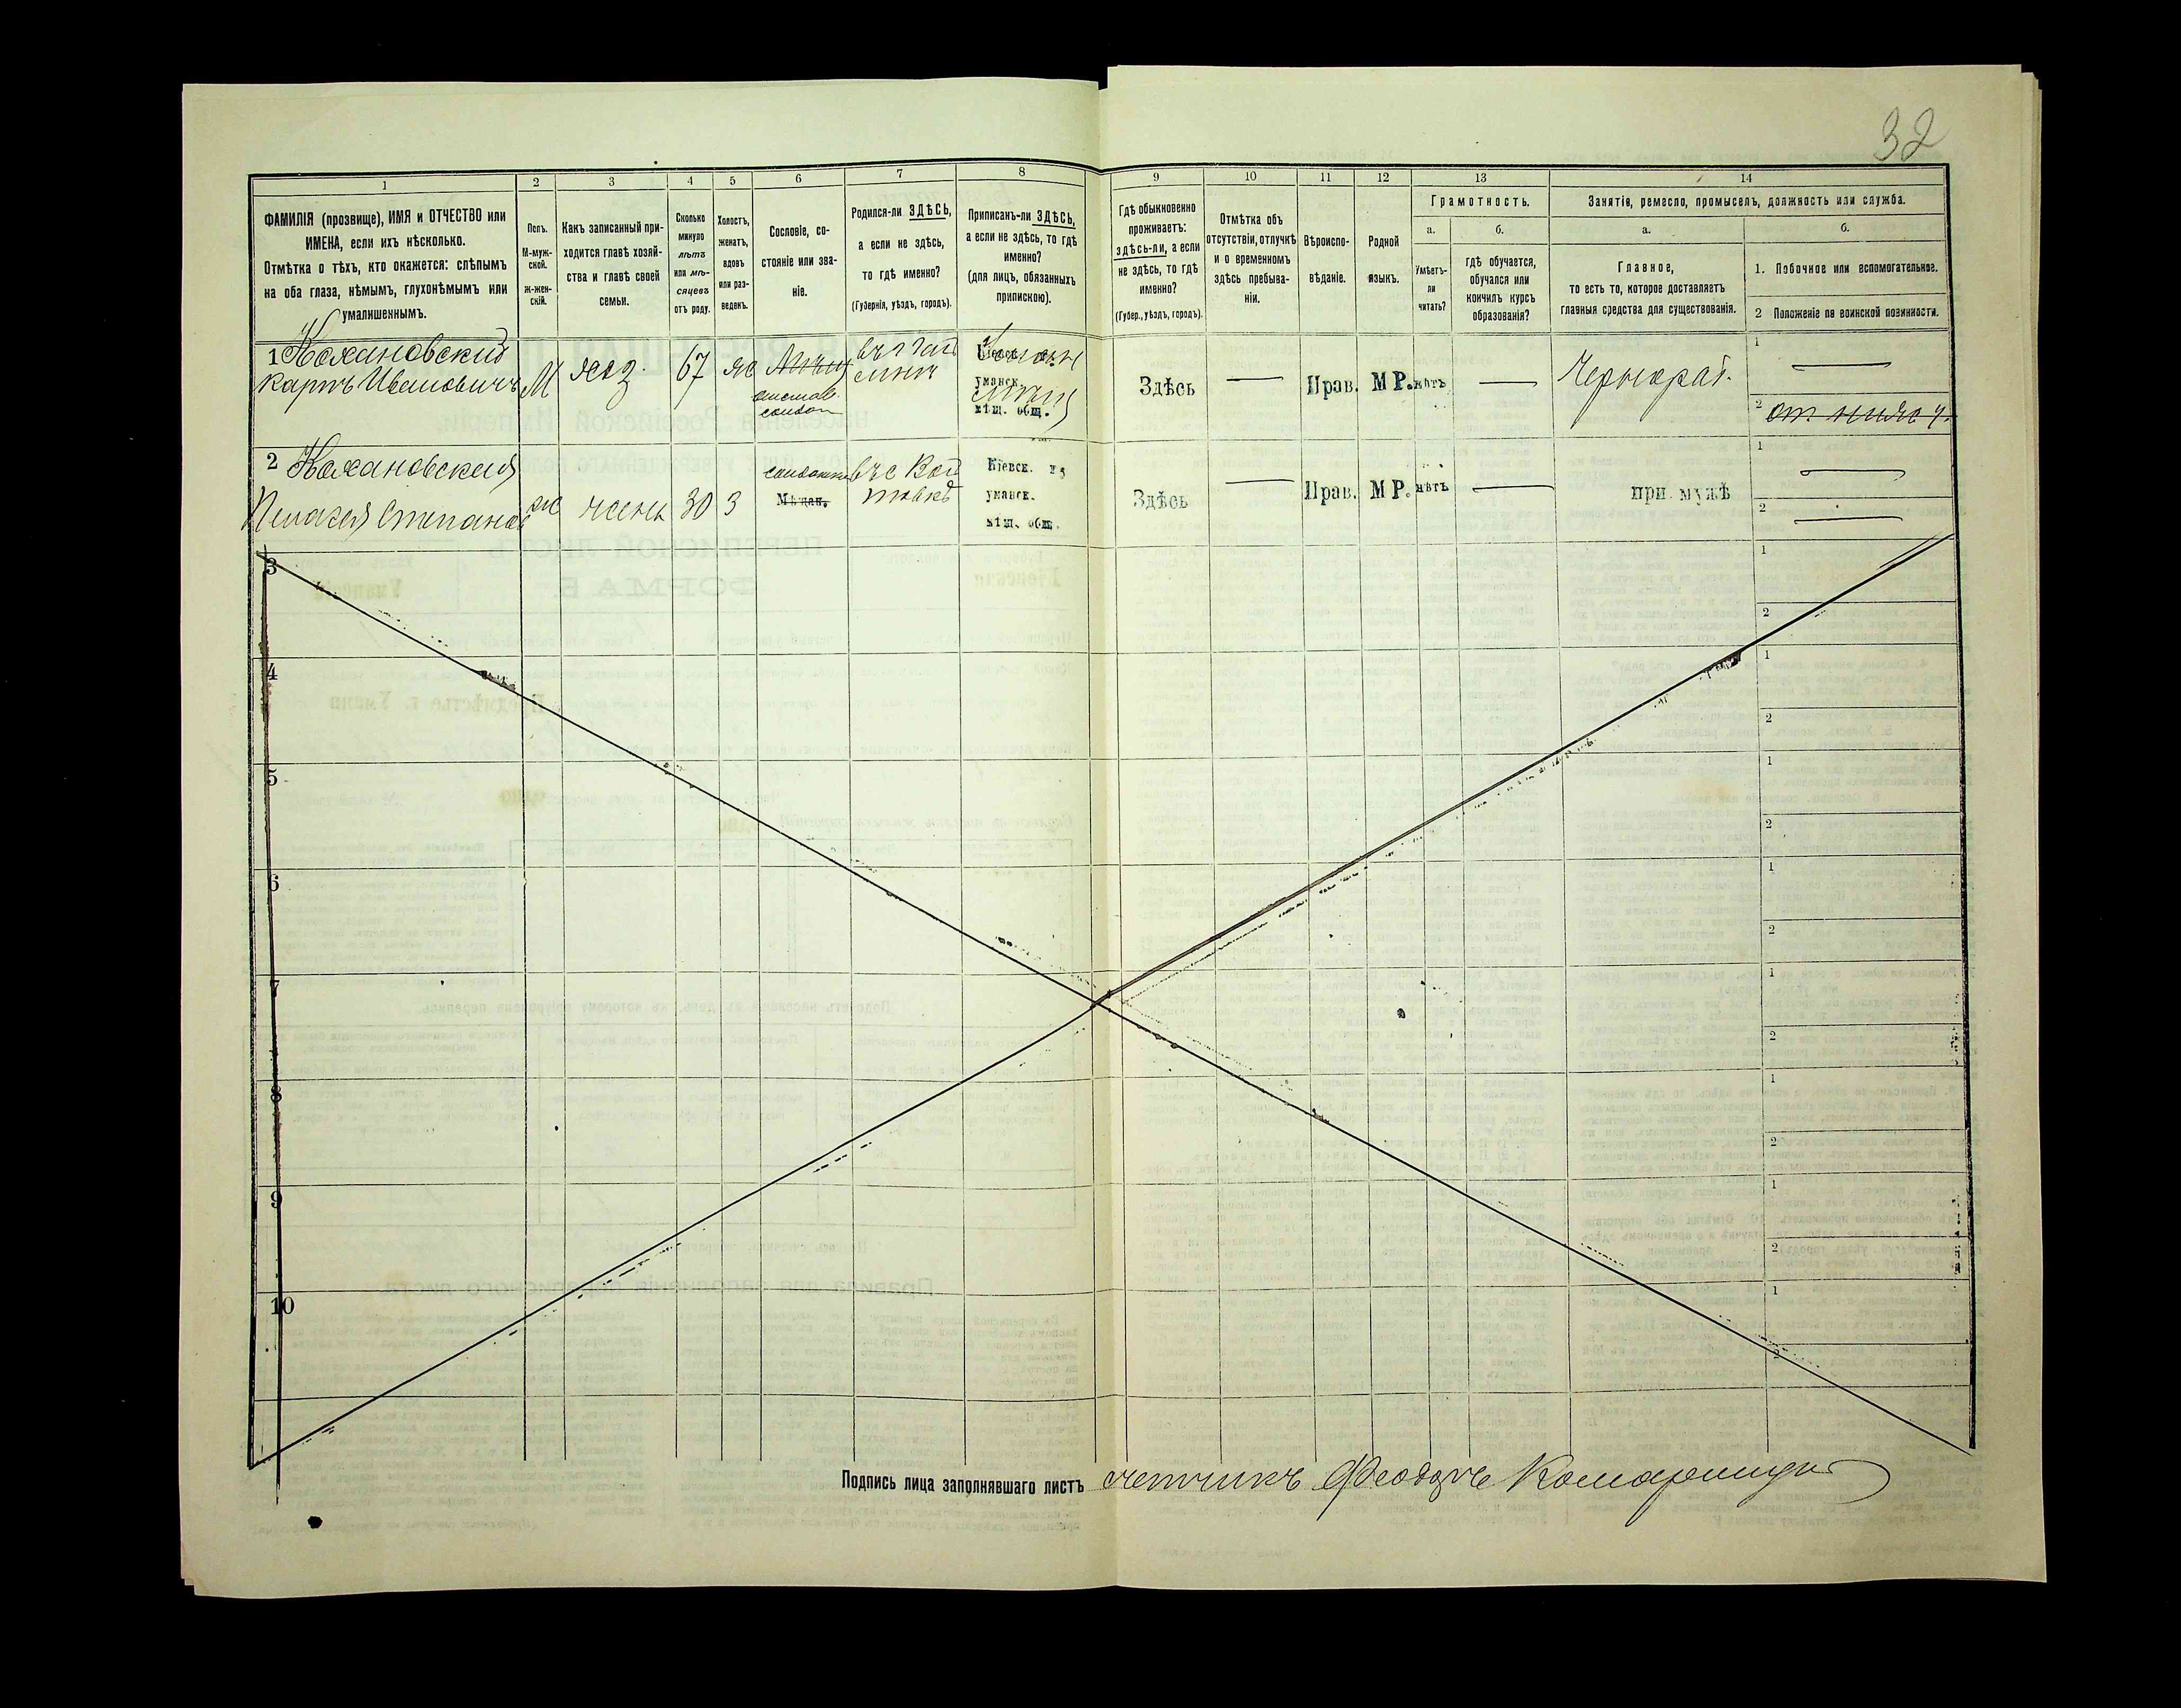 32
1 2 3 4 5 6 7 8 9 10 11 12 13 14
ФАМИЛІЯ (прозвище), ИМЯ и ОТЧЕСТВО или
ИМЕНА, если ихъ нѣсколько.
Отмѣтка о тѣхъ, кто окажется: слѣпымъ
на оба глаза, нѣмымъ, глухонѣмымъ или
умалишеннымъ.
Полъ.
М-муж-
ской.
ж-жен-
скій.
Какъ записанный при-
ходится главѣ хозяй-
ства и главѣ своей
семьи.
Сколько
минуло
лѣтъ
или мѣ-
сяцевъ
отъ роду.
Холостъ,
женатъ,
вдовъ
или раз-
веденъ.
Сословіе, со-
стояніе или зва-
ніе.
Родился-ли ЗДѢСЬ,
а если не здѣсь,
то гдѣ именно?
(Губернія, уѣздъ, городъ).
Приписанъ-ли ЗДѢСЬ,
а если не здѣсь, то гдѣ
именно?
(для лицъ, обязанныхъ
припискою).
Гдѣ обыкновенно
проживаетъ:
здѣсь-ли, а если
не здѣсь, то гдѣ
именно?
(Губер., уѣздъ, городъ).
Отмѣтка объ
отсутствіи, отлучкѣ
и о временномъ
здѣсь пребыва-
ніи.
Вѣроиспо-
вѣданіе.
Родной
языкъ.
Грамотность.
а.
Умѣетъ-
ли
читать?
б.
гдѣ обучается,
обучался или
кончилъ курсъ
образованія?
Занятіе, ремесло, промыселъ, должность или служба.
а.
Главное,
то есть то, которое доставляетъ
главныя средства для существованія.
б.
1. Побочное или вспомогательное.
2 Положеніе по воинской повинности.
1 Кохановский
Карпъ Ивановичъ
М хоз. 67 же
отстав.
солдат
уманск.
мѣщ. общ.
Здѣсь — Прав. М Р. нѣтъ —
Чернораб.
1 —
2 от. нижн. ч.
2 Кохановская
Пелагея Степанов
ж жена 30 з
Мѣщан.
Кіевск. г.
уманск.
мѣщ. общ.
Здѣсь — Прав. М Р. нѣтъ — при мужѣ
1 —
2 —
3 1
2
4 1
2
5 1
2
6 1
2
7 1
2
8 1
2
9 1
2
10 1
2
Подпись лица заполнявшаго листъ счетчикъ Феодоръ